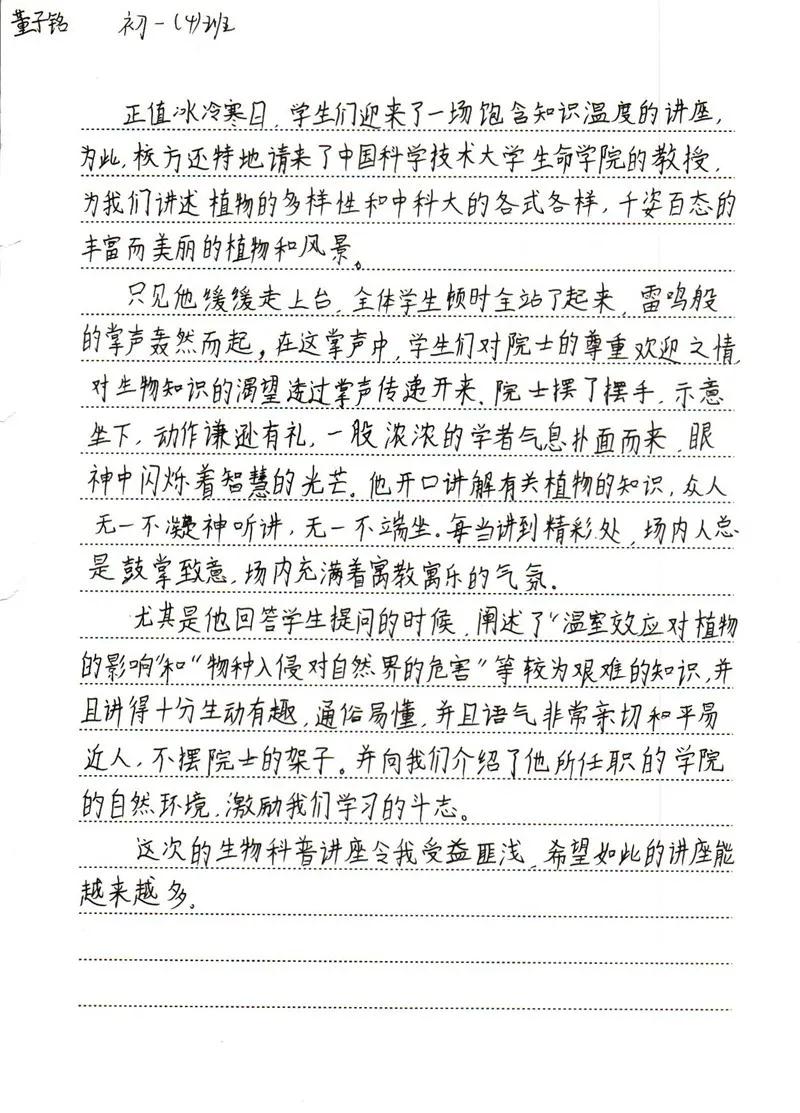 董子铭 初一(4)班
正值冰冷寒日,学生们迎来了一场饱含知识温度的讲座,
为此,校方还特地请来了中国科学技术大学生命学院的教授,
为我们讲述植物的多样性和中科大的各式各样,千姿百态的
丰富而美丽的植物和风景。
只见他缓缓走上台,全体学生顿时全站了起来,雷鸣般
的掌声轰然而起,在这掌声中,学生们对院士的尊重欢迎之情,
对生物知识的渴望透过掌声传递开来、院士摆了摆手,示意
坐下,动作谦逊有礼,一股浓浓的学者气息扑面而来,眼
神中闪烁着智慧的光芒。他开口讲解有关植物的知识,众人
无一不凝神听讲,无一不端坐.每当讲到精彩处,场内人总
是鼓掌致意,场内充满着寓教寓乐的气氛.
尤其是他回答学生提问的时候,阐述了“温室效应对植物
的影响”和“物种入侵对自然界的危害”等较为艰难的知识,并
且讲得十分生动有趣,通俗易懂,并且语气非常亲切和平易
近人,不摆院士的架子。并向我们介绍了他所任职的学院
的自然环境,激励我们学习的斗志。
这次的生物科普讲座令我受益匪浅,希望如此的讲座能
越来越多.